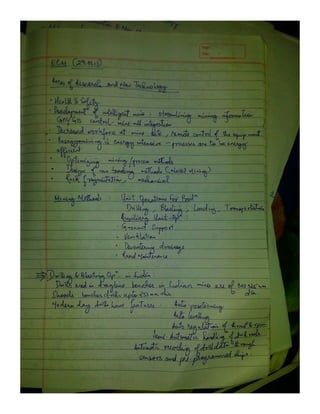 Page:
Date:
Areas of Research and New Technology
· Health & Safety
· Development of intelligent mine : streamlining mining information
control mine-mill integration
· Decreased workforce at mine site, remote control of the equipment
is energy intensive - processes are to be energy
efficient
· Optimizing mining/process methods
· Design of new methods
· Rock fragmentation, mechanical
Mining Methods Unit Operations For Prodn
Drilling, Blasting, Loading, Transportation
Auxiliary Unit Opn :
- Ground Support
- Ventilation
- Dewatering drainage
- Road Maintenance
Drilling & Blasting Opn in India :
Drills used in dragline benches in Indian mines are of mm
dia
Modern day drills have features : Auto positioning
Auto levelling
Auto regulation of thrust & rpm
Semi-Automatic handling of drill rods
Automatic recording of drill data through
sensors and pre-programmed chips.